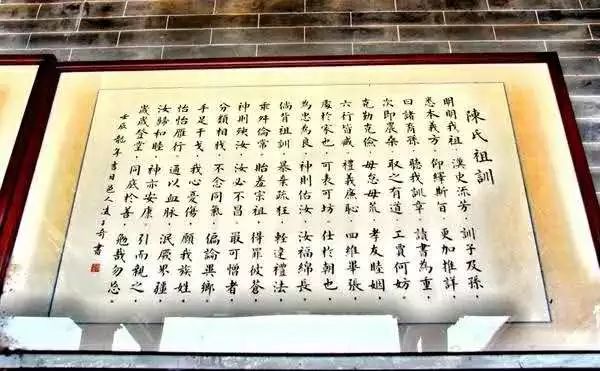 陳氏祖訓
明明我祖，漢史流芳，訓子及孫，
悉本義方，仰繹斯旨，更加推詳，
曰諸裔孫，聽我訓章，讀書為重，
次即農桑，取之有道，工賈何妨，
克勤克儉，毋怠毋荒，孝友睦姻，
六行皆臧，禮義廉恥，四維畢張，
處於家也，可表可坊，仕於朝也，
為忠為良，神則佑汝，汝福綿長，
倘背祖訓，暴棄疏狂，輕違禮法，
乖舛倫常，貽羞宗祖，得罪彼蒼，
神則殃汝，汝必不昌，最可憎者，
分類相戕，不念同氣，偏論異鄉，
手足干戈，我心憂傷，願我族姓，
怡怡雁行，通以血脈，泯厥界疆，
汝歸和睦，神亦安康，引而親之，
歲歲登堂，同底於善，勉哉勿忘，
壬辰龍年書日邑人奇書